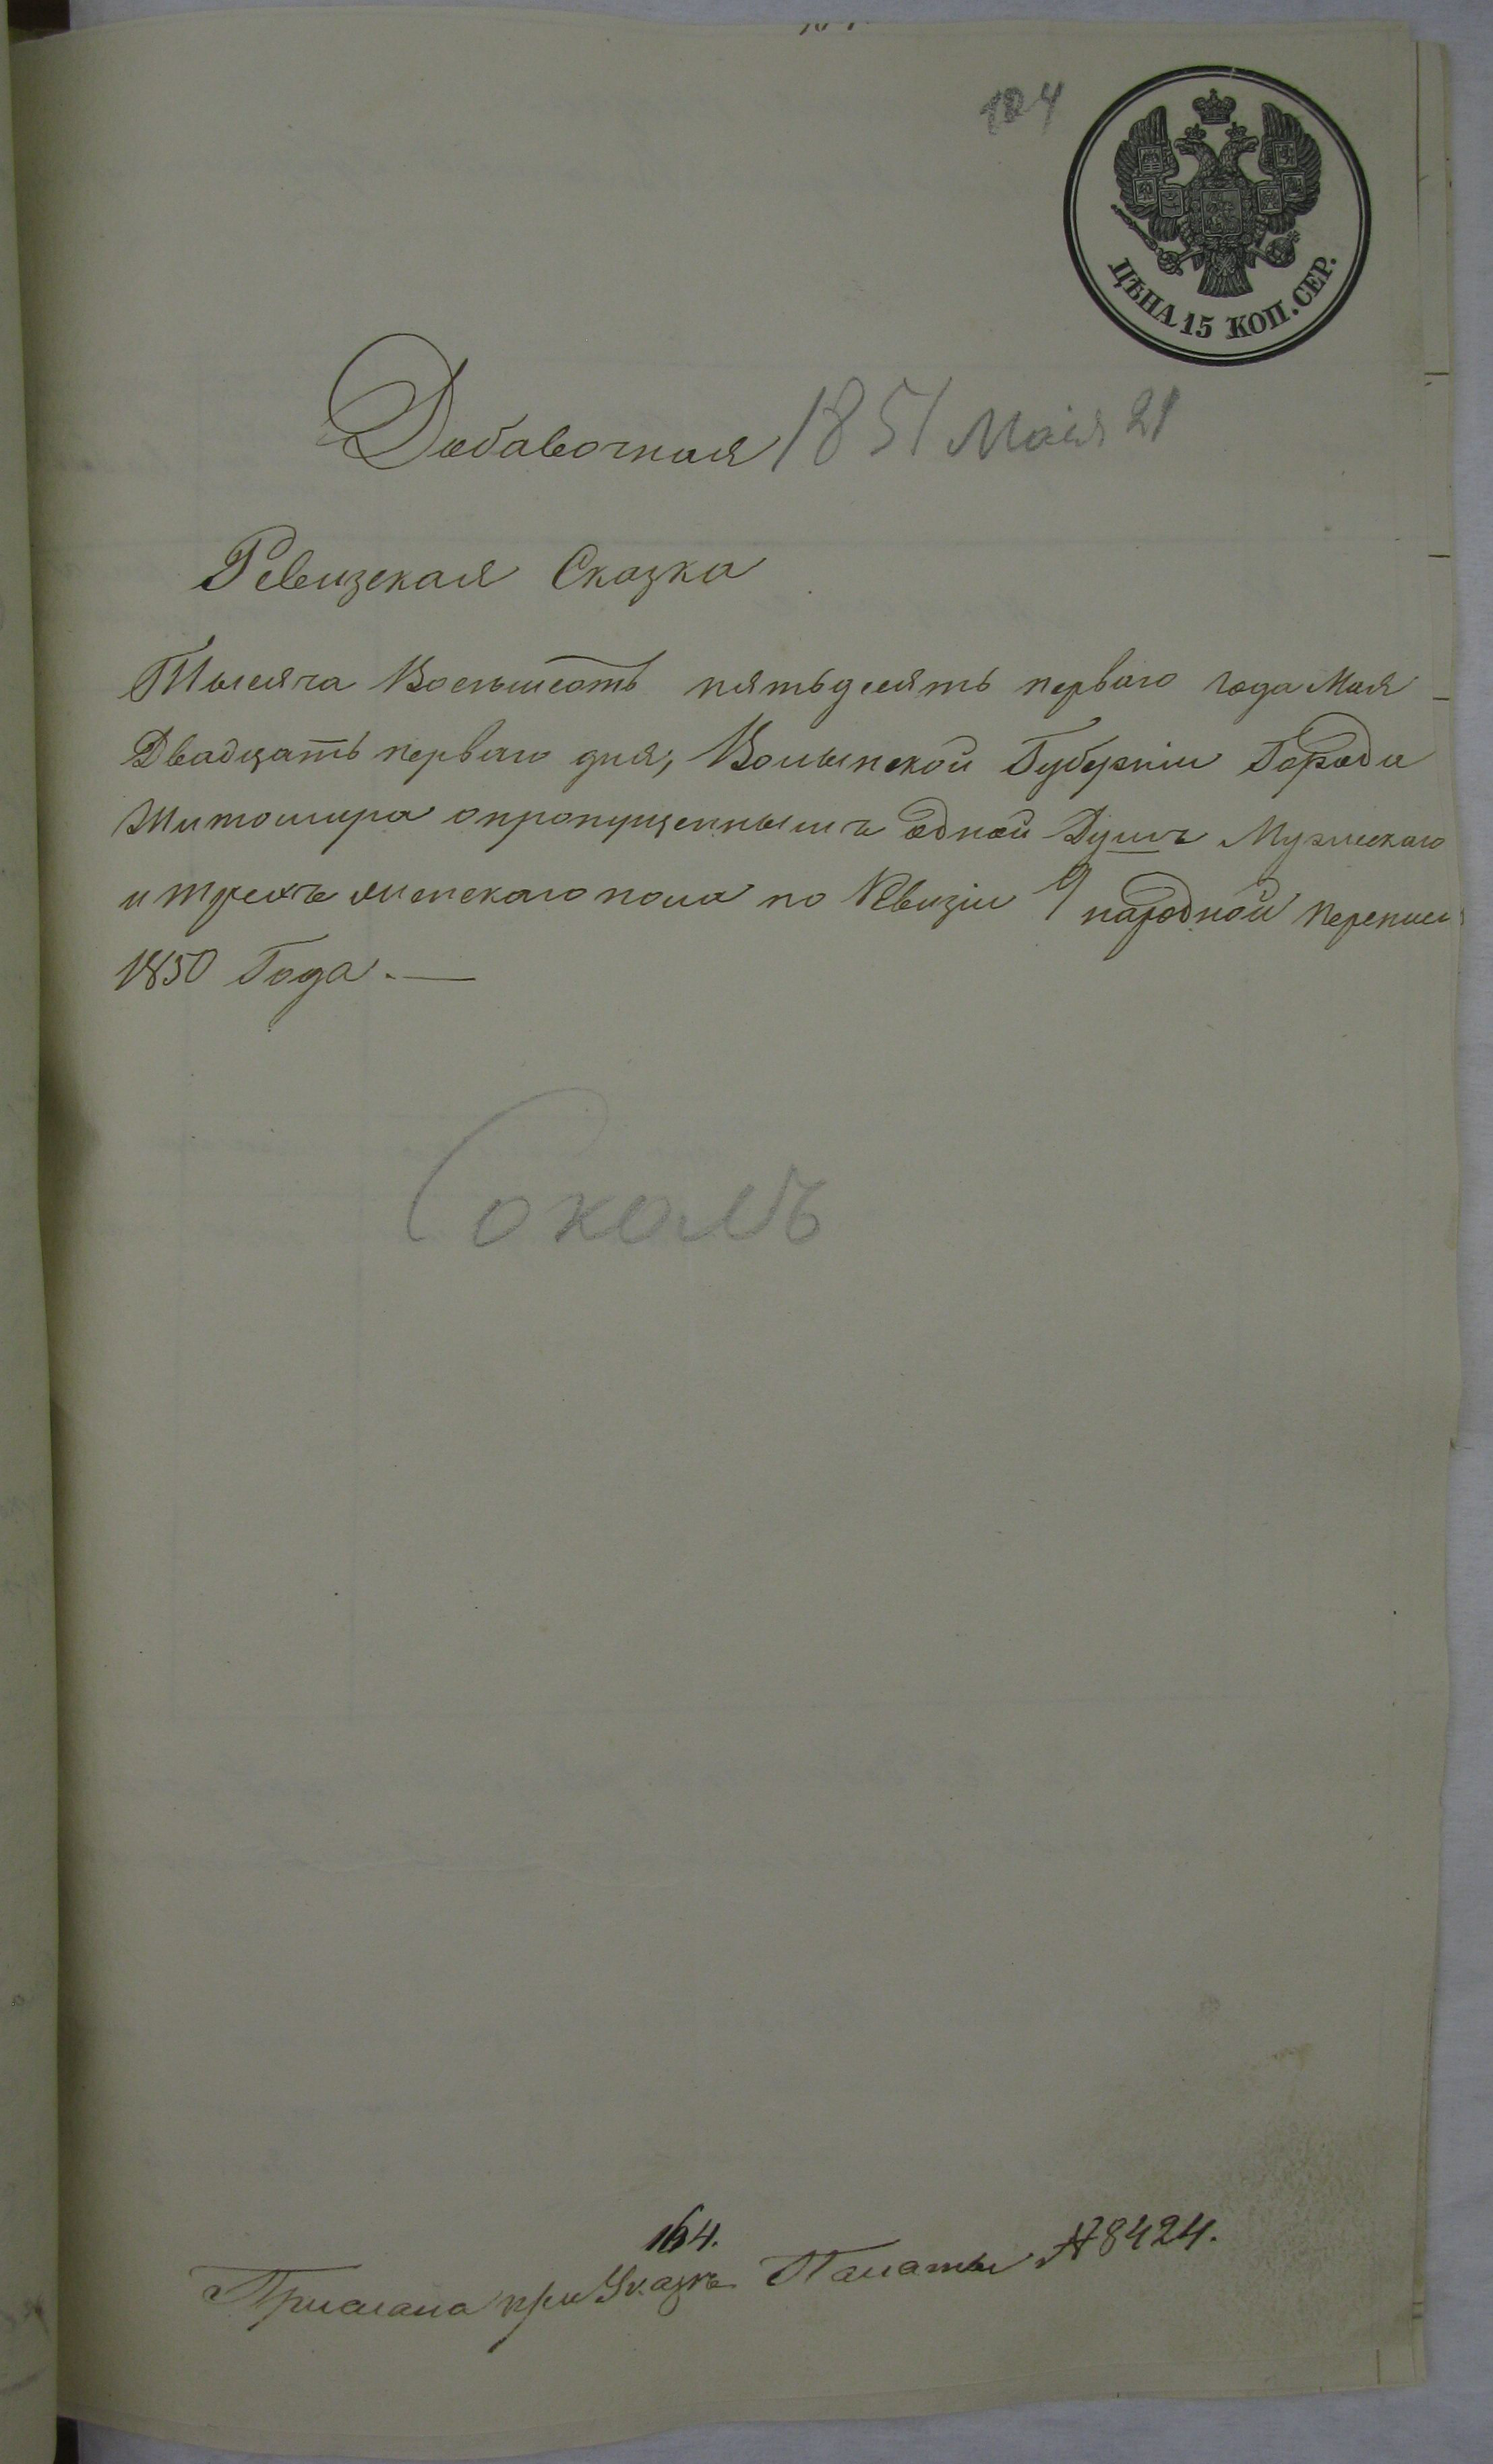 124
ЦѢНА 15 КОП. СЕР.
Добавочная 1851 Маія 21
Ревизская Сказка
Тысяча Восемьсотъ пятьдесятъ перваго года Мая
Двадцать перваго дня, Волынской Губерніи Города
Житомира о пропущенныхъ одной Душѣ Мужескаго
и трехъ женскаго пола по Ревизіи 9 народной переписи
1850 Года. —
Соколъ
164.
Прислана при Указѣ Палаты № 8424.